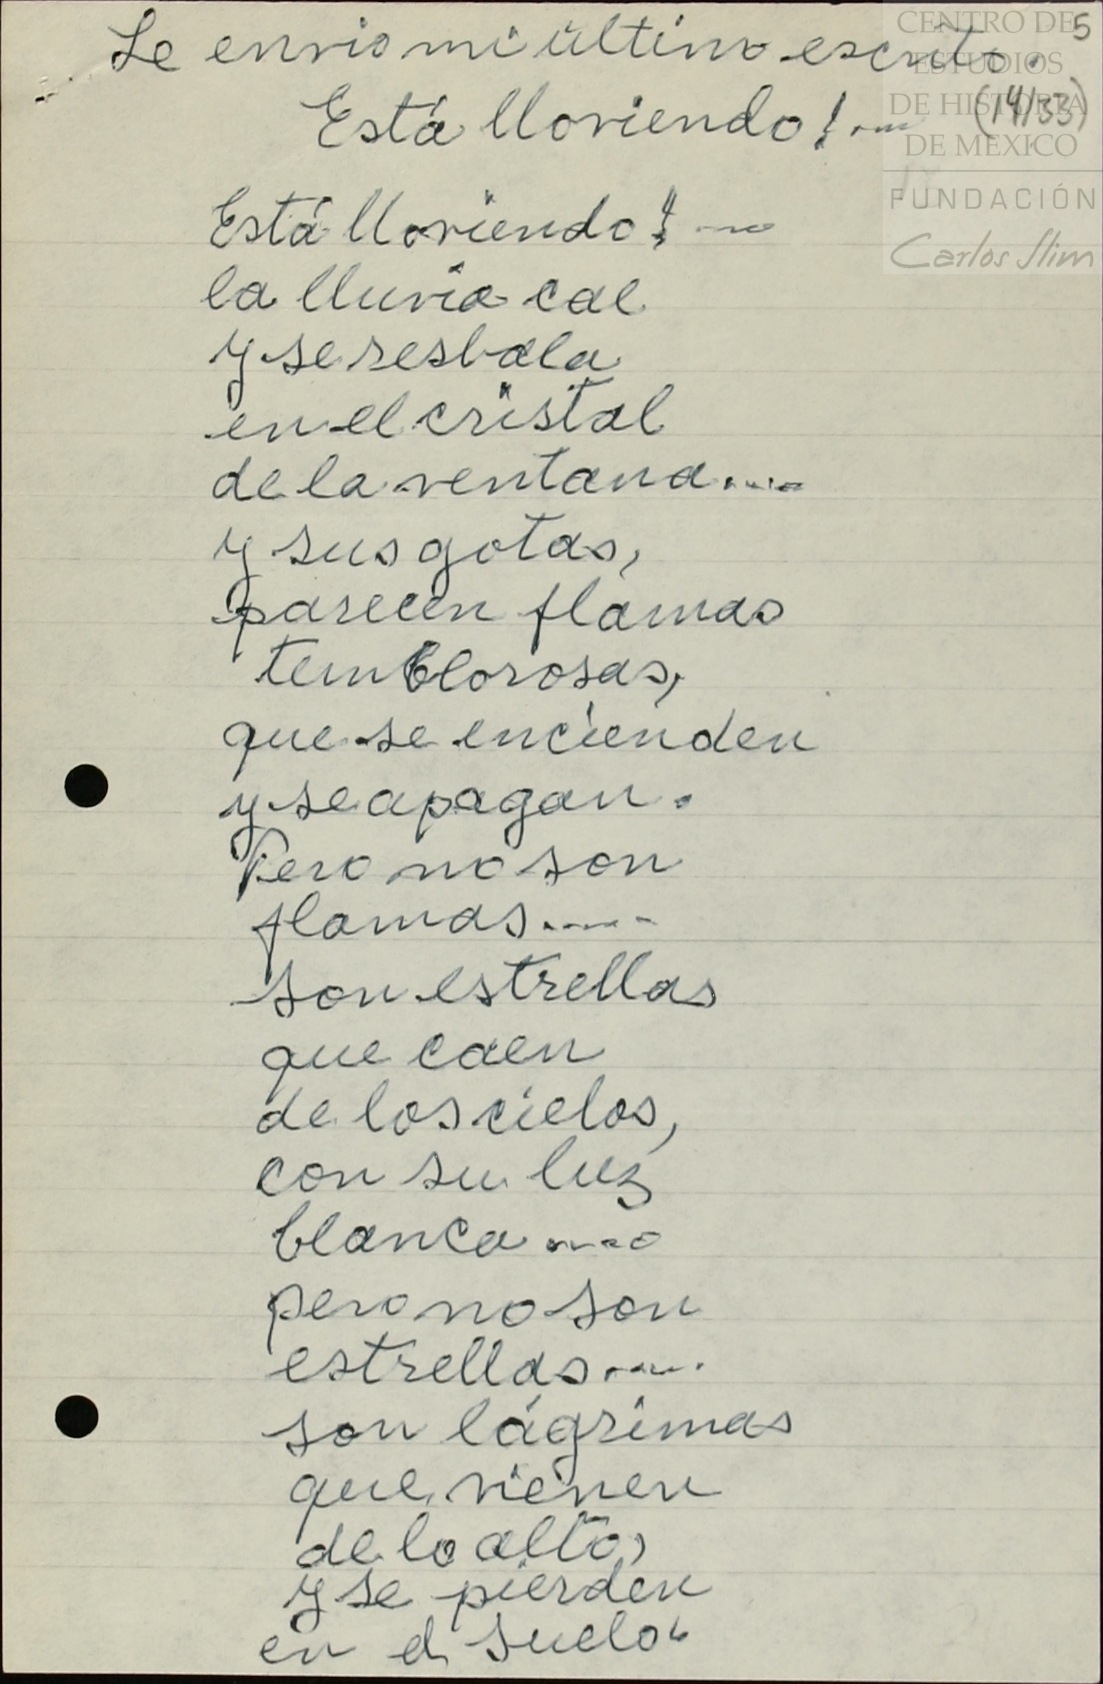 CENTRO DE
ESTUDIOS
DE HISTORIA
DE MÉXICO
FUNDACIÓN
Carlos Slim
5
(14/33)
Le envio mi último escrito.
Está lloviendo!....
Está lloviendo!....
la lluvia cae
y se resbala
en el cristal
de la ventana....
y sus gotas,
parecen flamas
temblorosas,
que se encienden
y se apagan.
Pero no son
flamas.....
son estrellas
que caen
de los cielos,
con su luz
blanca....
pero no son
estrellas.....
son lágrimas
que vienen
de lo alto,
y se pierden
en el suelo.